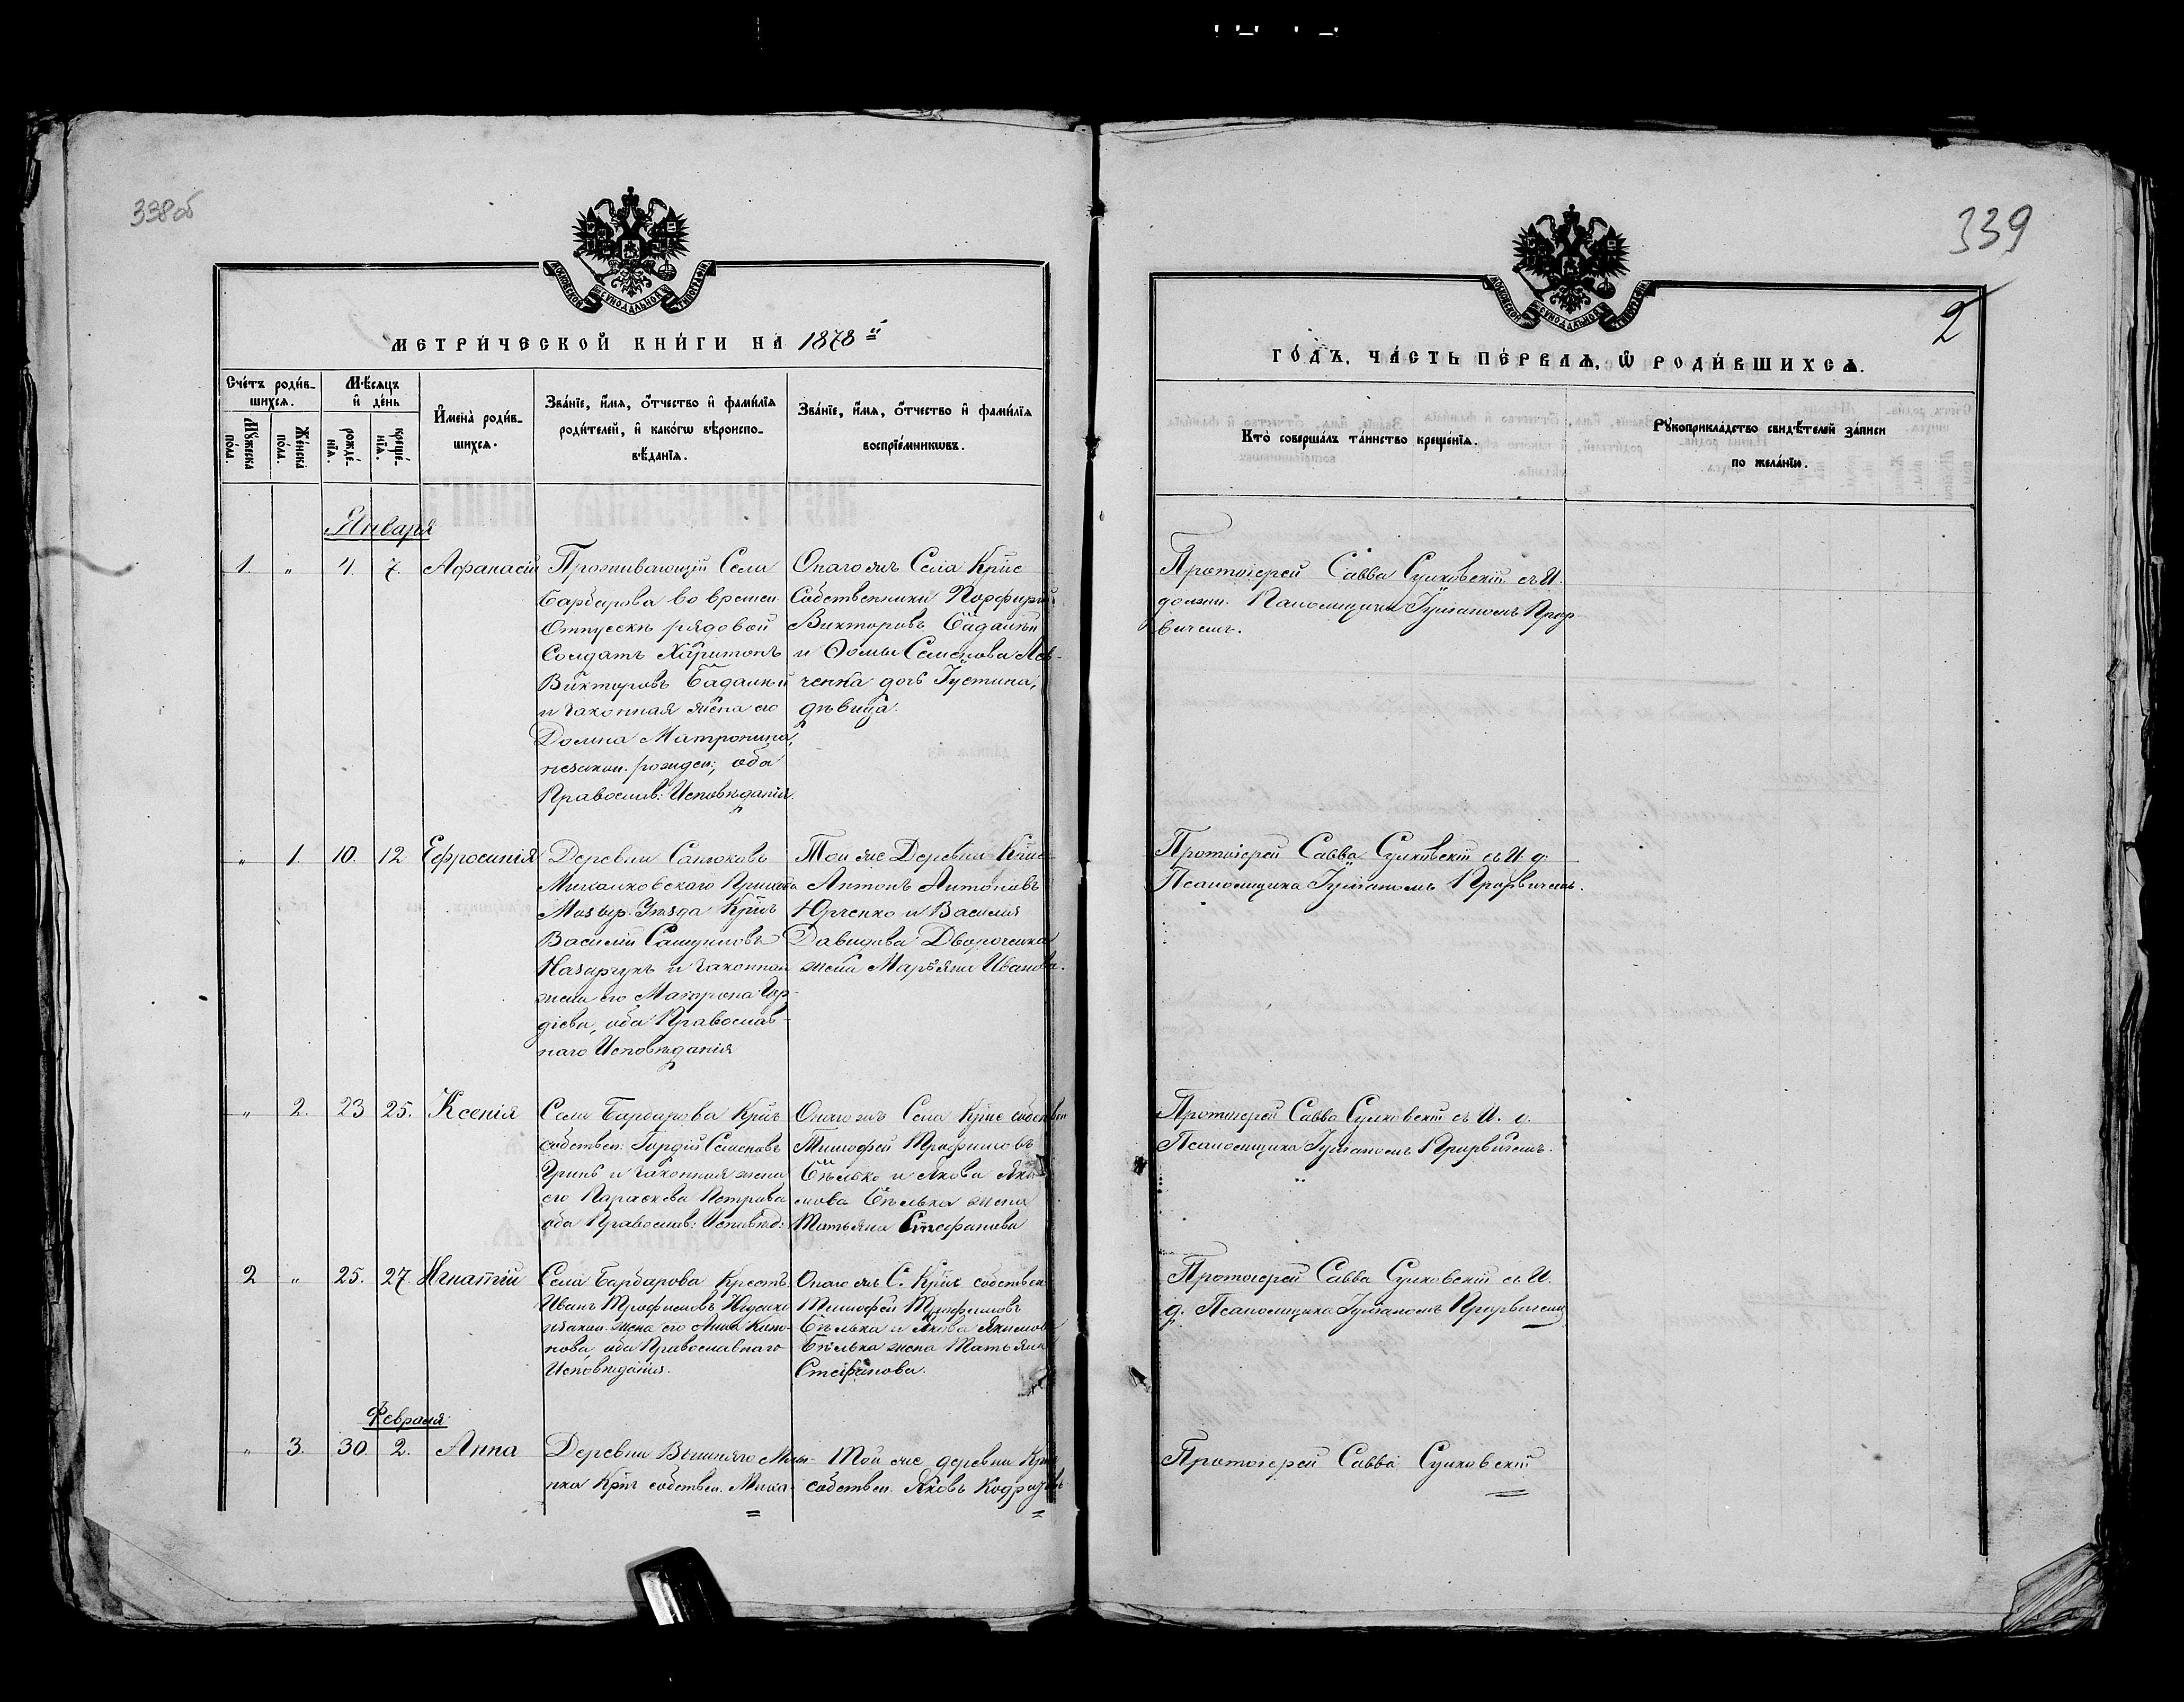 338об
339
2
МОСКОВСКОЙ СѴНОДАЛЬНОЙ ТИПОГРАФІИ
МЕТРИ́ЧЕСКОЙ КНИ́ГИ НА 1878 й
МОСКОВСКОЙ СѴНОДАЛЬНОЙ ТИПОГРАФІИ
ГО́ДЪ, ЧА́СТЬ ПЕ́РВАѦ, Ѡ РОДИ́ВШИХСѦ.
Сче́тъ роди́в-
шихсѧ.
Мꙋ́жеска по́ла.
Же́нска по́ла.
Мѣ́сяцъ и҆ де́нь
рожде́-нїѧ.
креще́-нїѧ.
И҆мена̀ роди́в-
шихсѧ.
Зва́нїе, и҆́мѧ, ѻ҆́тчество и҆ фами́лїѧ
роди́телей, и҆ како́гѡ вѣроиспо-
вѣ́данїѧ.
Зва́нїе, и҆́мѧ, ѻ҆́тчество и҆ фами́лїѧ
воспрїе́мникѡвъ.
Кто̀ соверша́лъ та́инство креще́нїѧ.
Рꙋкоприкла́дство свидѣ́телей за́писи
по жела́нїю.
Января
1. " 4. 7. Афанасій
Проживающій Села
Барбарова во времен.
Отпускѣ рядовой
Солдатъ Харитонъ
Викторовъ Бадалый
и законная жена его
Домна Матронина,
незакон. рожден:, оба
Православ: Исповѣданія.
Онаго жъ Села Крѣс
Собственники Порфирій
Викторовъ Бадалый
и Фомы Семенова Лев-
ченка дочь Іустина,
дѣвица.
Протоіерей Савва Сулковскій съ И.
должн. Псаломщика Іуліаномъ Прор-
вичемъ.
" 1. 10. 12 Ефросинія
Деревни Сапоковъ
Михалковскаго Прихода
Мозыр. Уѣзда Крѣс
Василій
и законная
жена его Матрона Гор-
діева, оба Православ-
наго Исповѣданія
Той же Деревни Крѣс
Антонъ Антоновъ
Юрченко и Василія
Давидова
жена Маріяна Иванова.
Протоіерей Савва Сулковскій съ И. д.
Псаломщика Іуліаномъ Прорвичемъ.
" 2. 23 25. Ксенія
Села Барбарова Крѣс
собствен: Гордій Семеновъ
и законная жена
его Параскева Петрова
оба Православ: Исповѣд:
Онаго жъ Села Крѣс собствен
Тимофей Трофимовъ
Бѣлько и Якова Яки-
мова Бѣлька жена
Татьяна Стефанова
Протоіерей Савва Сулковскій съ И. д.
Псаломщика Іуліаномъ Прорвичемъ.
2 " 25. 27. Игнатій
Села Барбарова Крестъ.
Иванъ Трофимовъ
и закон. жена его Анна
нова, оба Православнаго
Исповѣданія.
Онаго жъ С. Крѣс собствен
Тимофей Трофимовъ
Бѣлька и Якова Якимова
Бѣлька жена Татьяна
Стефанова.
Протоіерей Савва Сулковскій съ И.
д. Псаломщика Іуліаномъ Прорвичемъ
Февраля
" 3. 30. 2. Анна
Деревни Вышняго Млы-
нка Крѣс собствен. Миха-
Той же деревни Крѣс
собствен. Яковъ
Протоіерей Савва Сулковскій